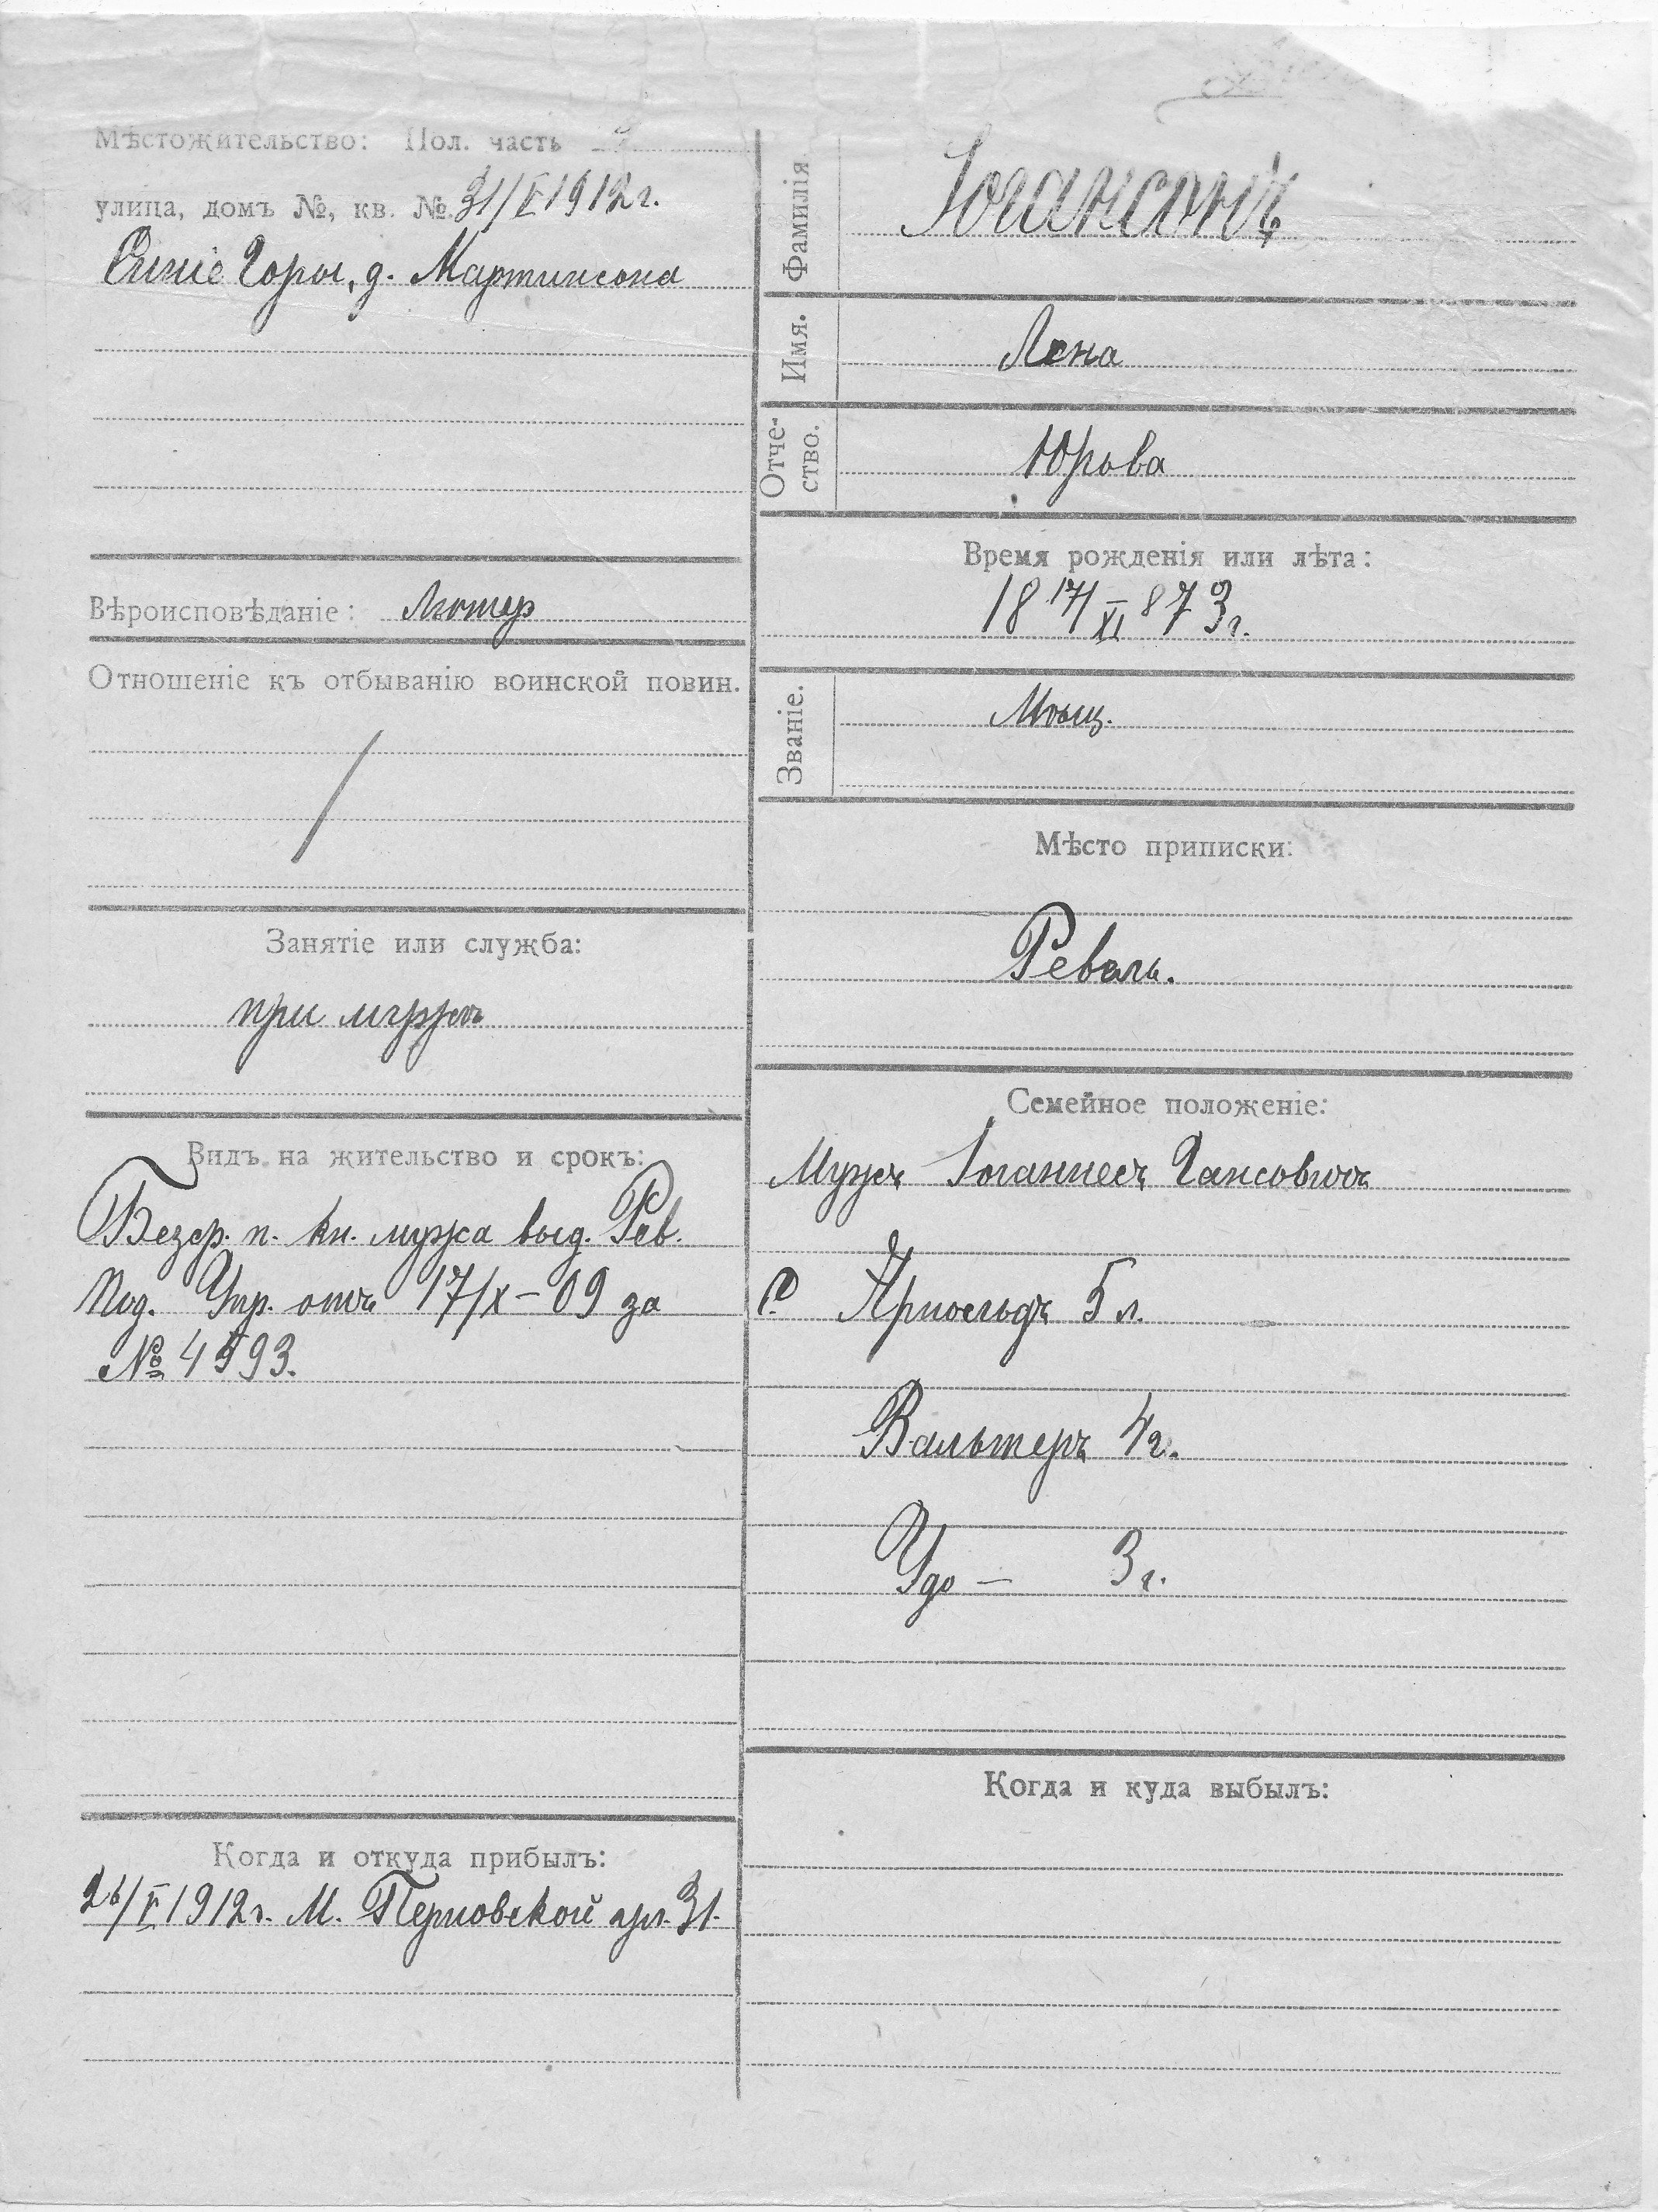 Мѣстожительство: Пол. часть
улица, домъ №, кв. № 31/V 1912 г.
Синіе Горы, д. Мартинсона
Вѣроисповѣданіе: Лютер
Отношеніе къ отбыванію воинской повин.
/
Занятіе или служба:
при мужѣ
Видъ на жительство и срокъ:
Безср. п. кн. мужа выд. Рев.
Под. Упр. отъ 17/X – 09 за
№ 4593.
Когда и откуда прибылъ:
26/V 1912 г. М. Перновской ул. 31.
Фамилія
Іогансонъ
Имя.
Лена
Отче-
ство.
Юрьева
Время рожденія или лѣта:
18 17/XI 873 г.
Званіе.
Мѣщ.
Мѣсто приписки:
Ревель.
Семейное положеніе:
Мужъ Іоганнесъ Гансовичъ
с. Арнольдъ 5 л.
Вальтеръ 4 г.
Удо — 3 г.
Когда и куда выбылъ: